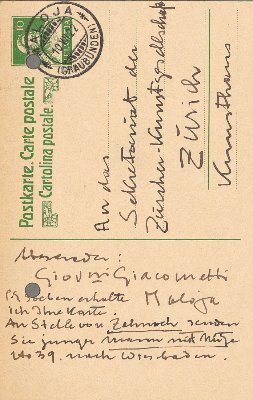 10
MALOJA
(GRAUBÜNDEN)
Postkarte. Carte postale
Cartolina postale.
An das
Sekretariat der
Zürcher-Kunstgesellschaft
Zürich
Kunsthaus
Absender:
Giov.ni Giacometti
Maloja
P.S. soeben erhalte
ich Ihre Karte.
An Stelle von Zehnoch senden
Sie junger Mann mit Mütze
No 39. nach Wiesbaden.